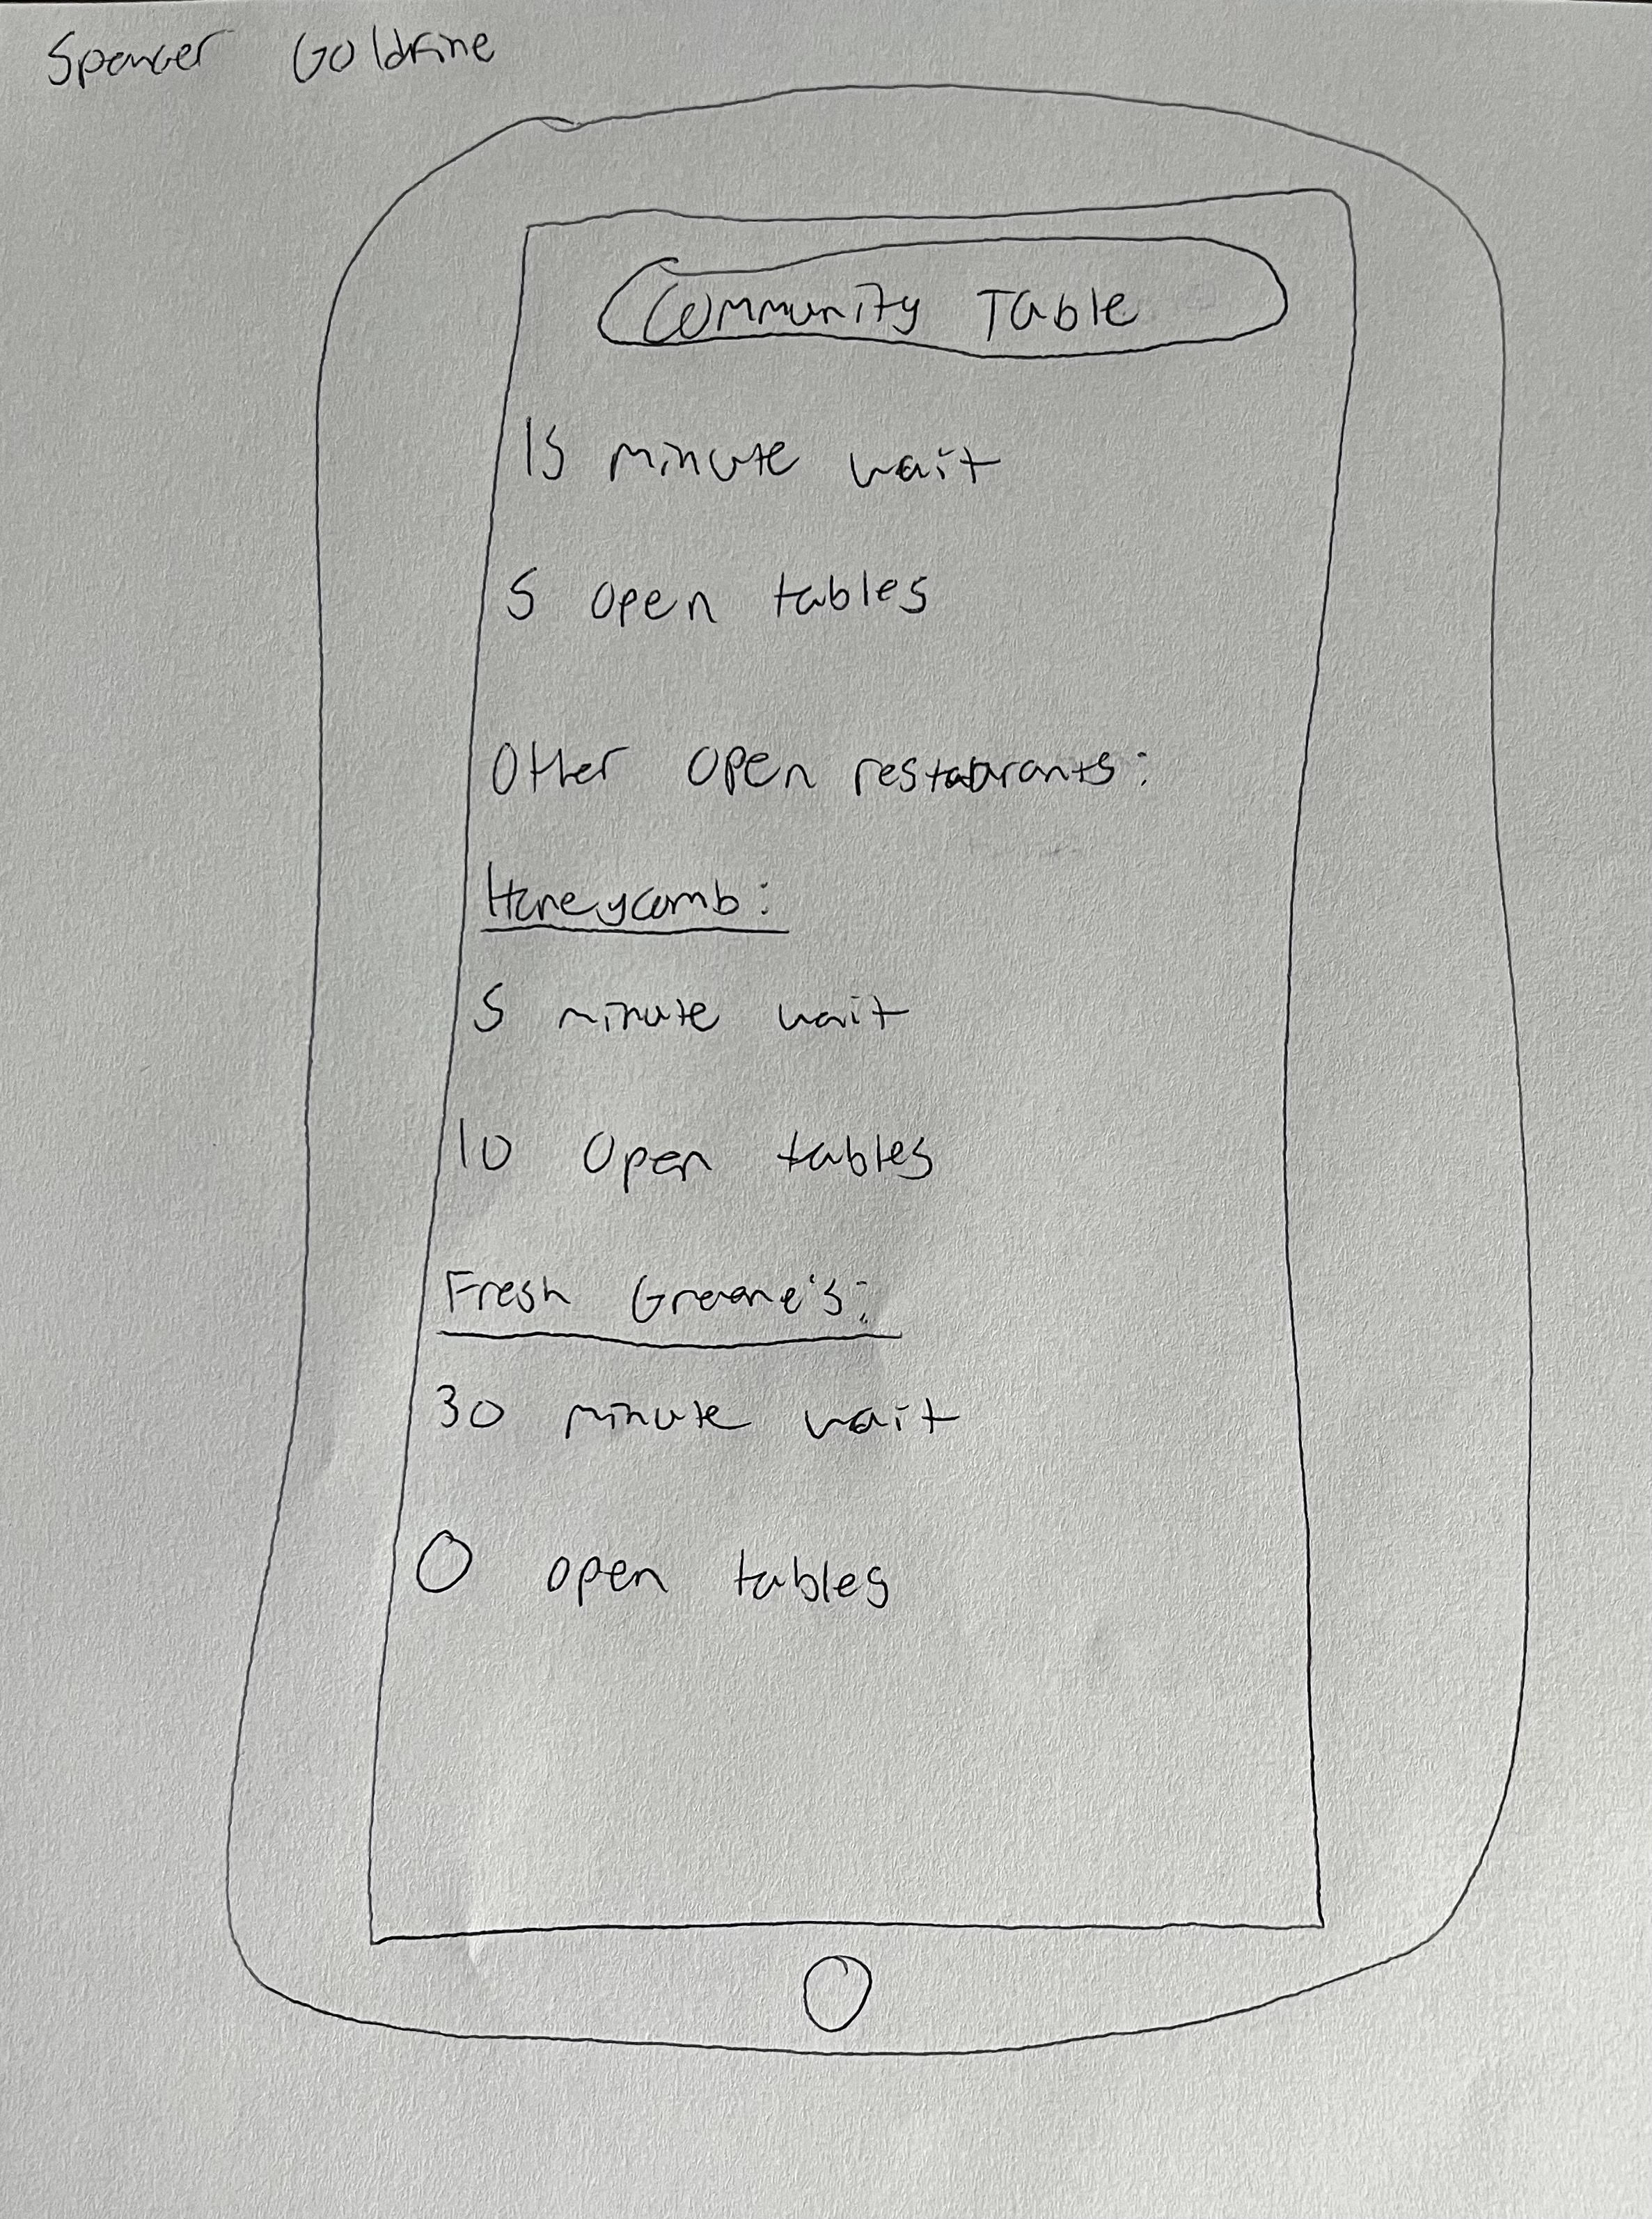 Spencer Goldfine
Community Table
15 minute wait
5 open tables
Other open restaurants:
Honeycomb:
5 minute wait
10 Open tables
Fresh Greene's:
30 minute wait
0 open tables